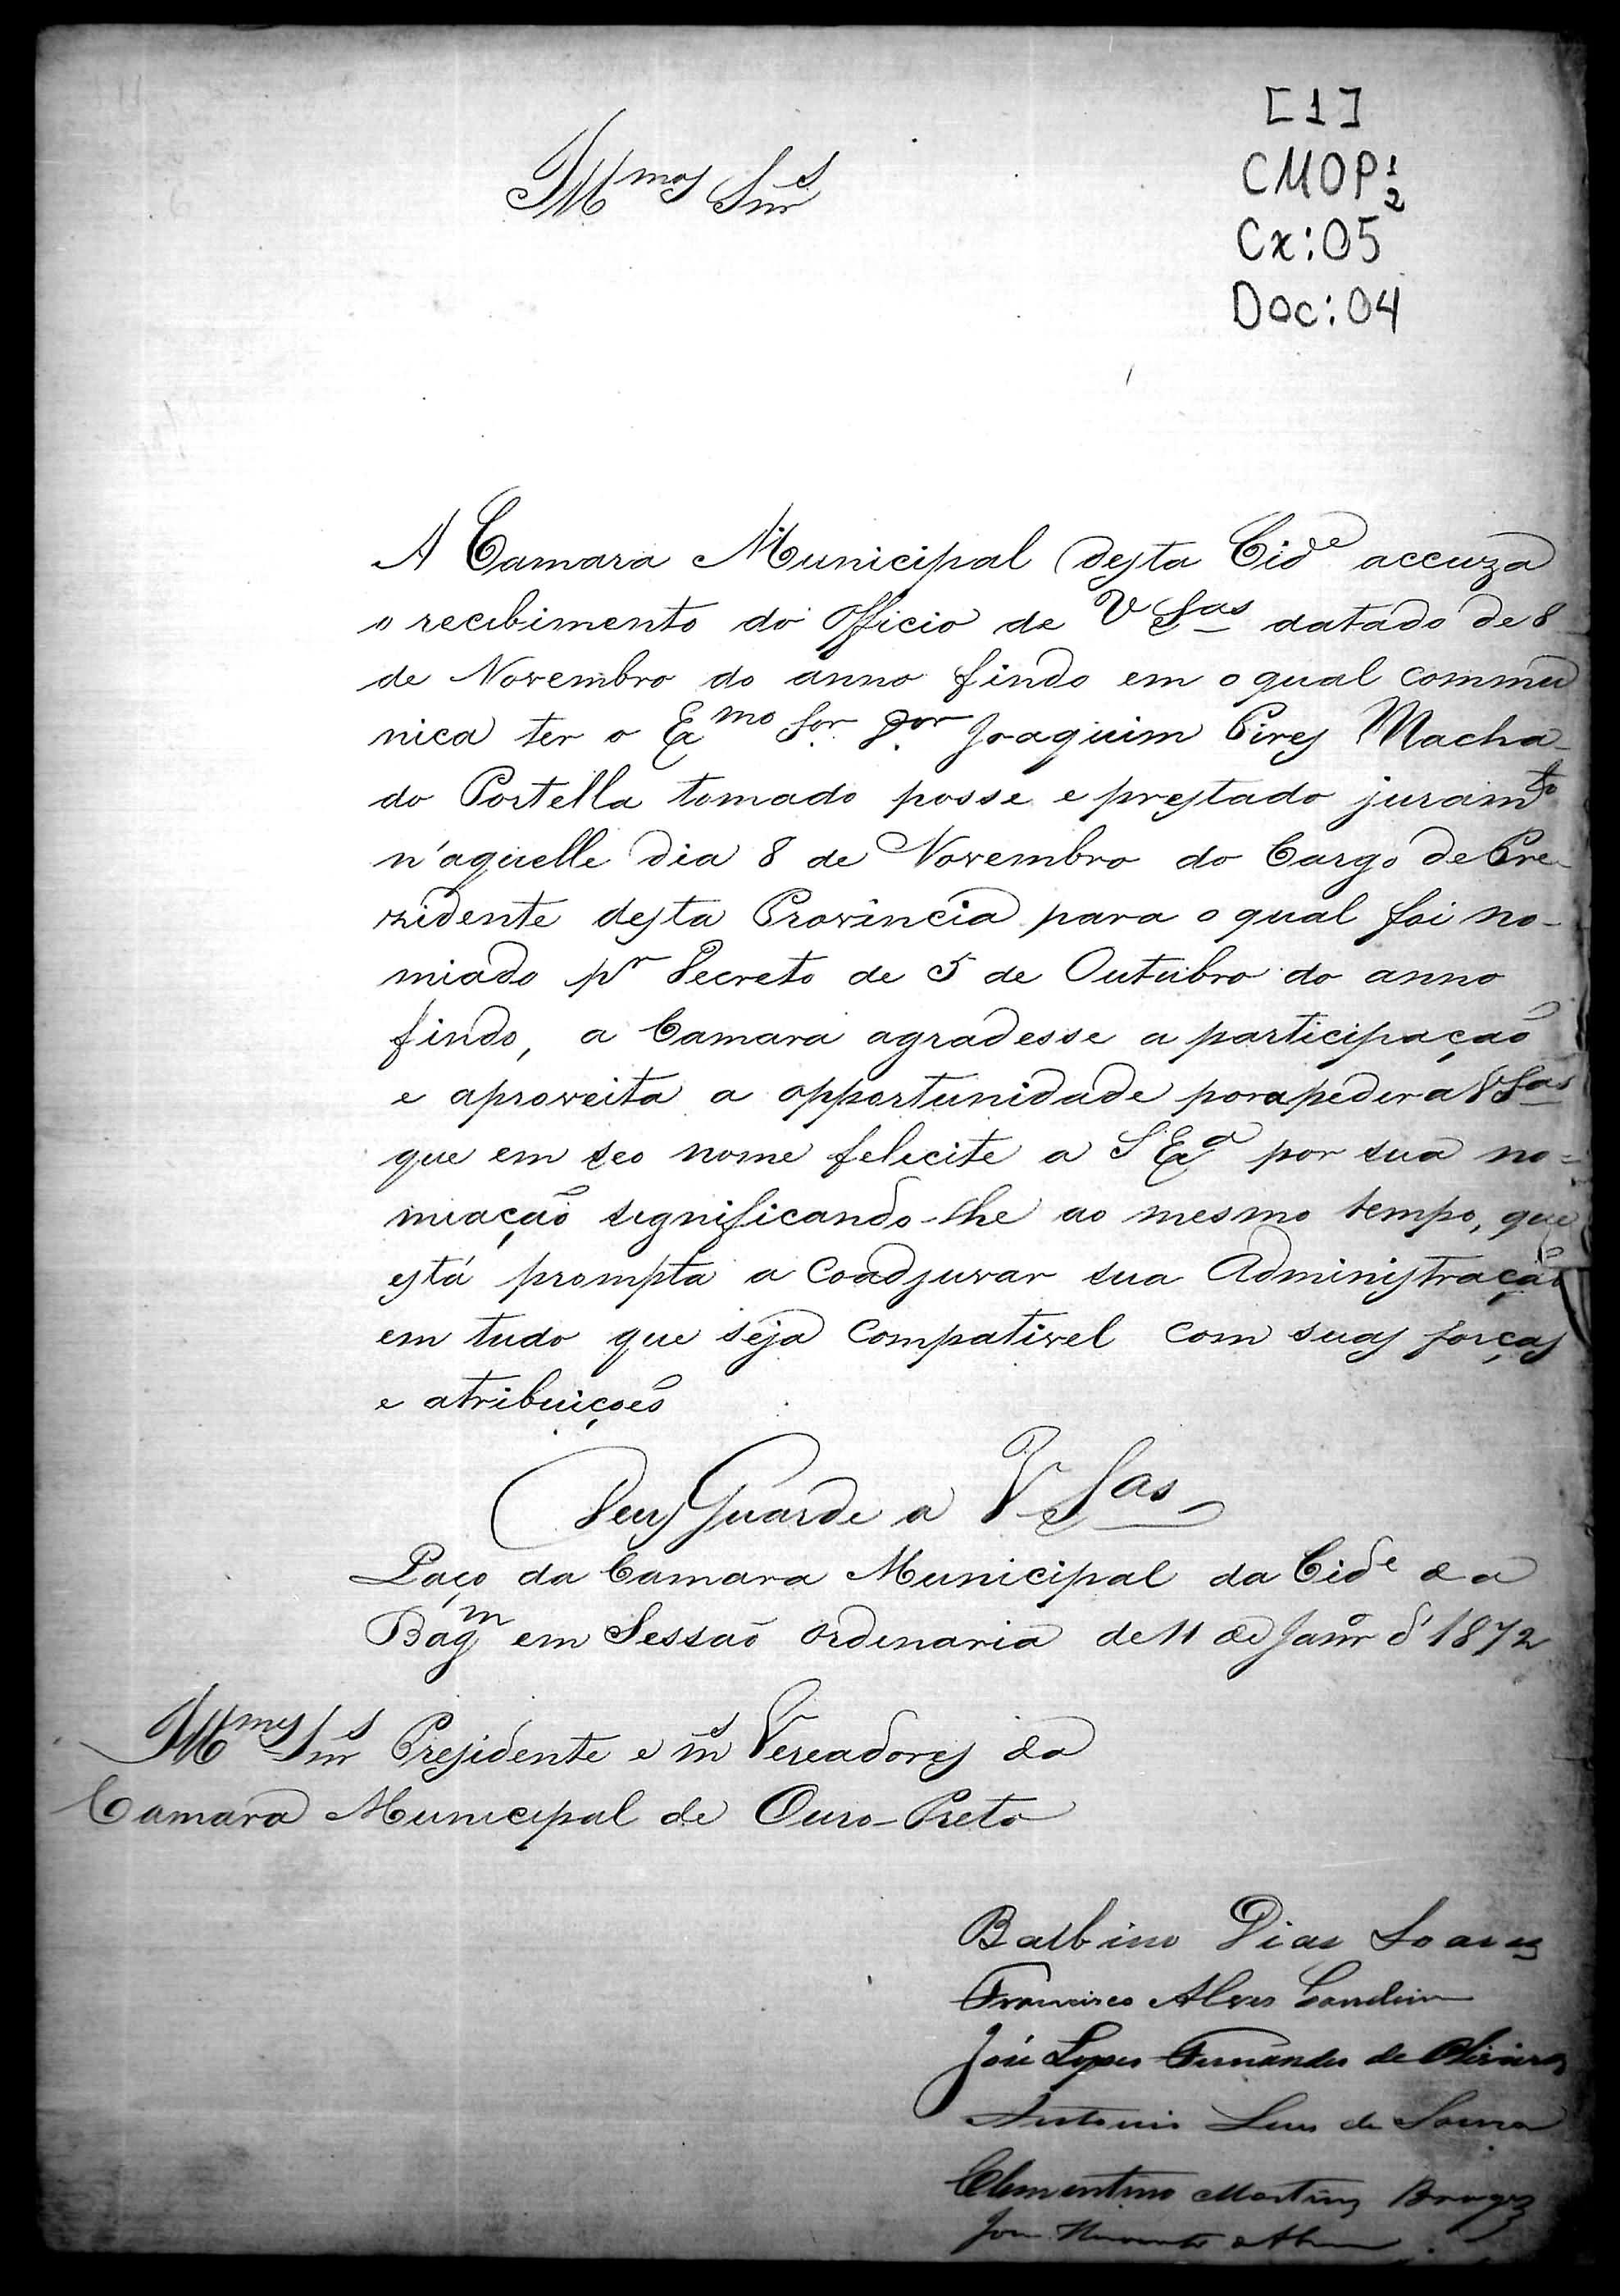 [1]
CMOP 1/2
Cx: 05
Doc: 04
Illmos Snrs
A Camara Municipal desta Cide accuza
o recebimento do Officio de V Sas datado de 8
de Novembro do anno findo em o qual commu
nica ter o Exmo Sor Dor Joaquim Pires Macha-
do Portella tomado posse e prestado juramto
n'aquelle dia 8 de Novembro do Cargo de Pre-
zidente desta Provincia para o qual foi no-
miado pr Decreto de 5 de Outubro do anno
findo, a Camara agradesse a participação
e aproveita a opportunidade para pedir a V Sas
que em seo nome felecite a S Exa por sua no=
miação significando-lhe ao mesmo tempo, que
está prompta a coadjuvar sua Administração
em tudo que seja compativel com suas forças
e atribuições
Deus Guarde a V Sas
Paço da Camara Municipal da Cide da
Bagm em Sessaõ ordenaria de 11 de Janro d'1872
Illmos Snrs Presidente e mais Vereadores da
Camara Municipal de Ouro-Preto
Balbino Dias Soares
Francisco Alves
José Lopes Fernandes de Oliveira
Antonio Luis de Souza
Clementino Martins Borges